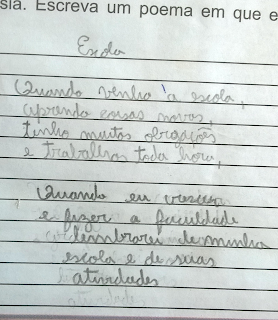 sia. Escreva um poema em que e
Escola
Quando venho à escola,
aprendo coisas novas,
tenho muitas obrigações
e trabalhos toda hora,
Quando eu crescer
e fizer a faculdade
lembrarei de minha
escola e de suas
atividades